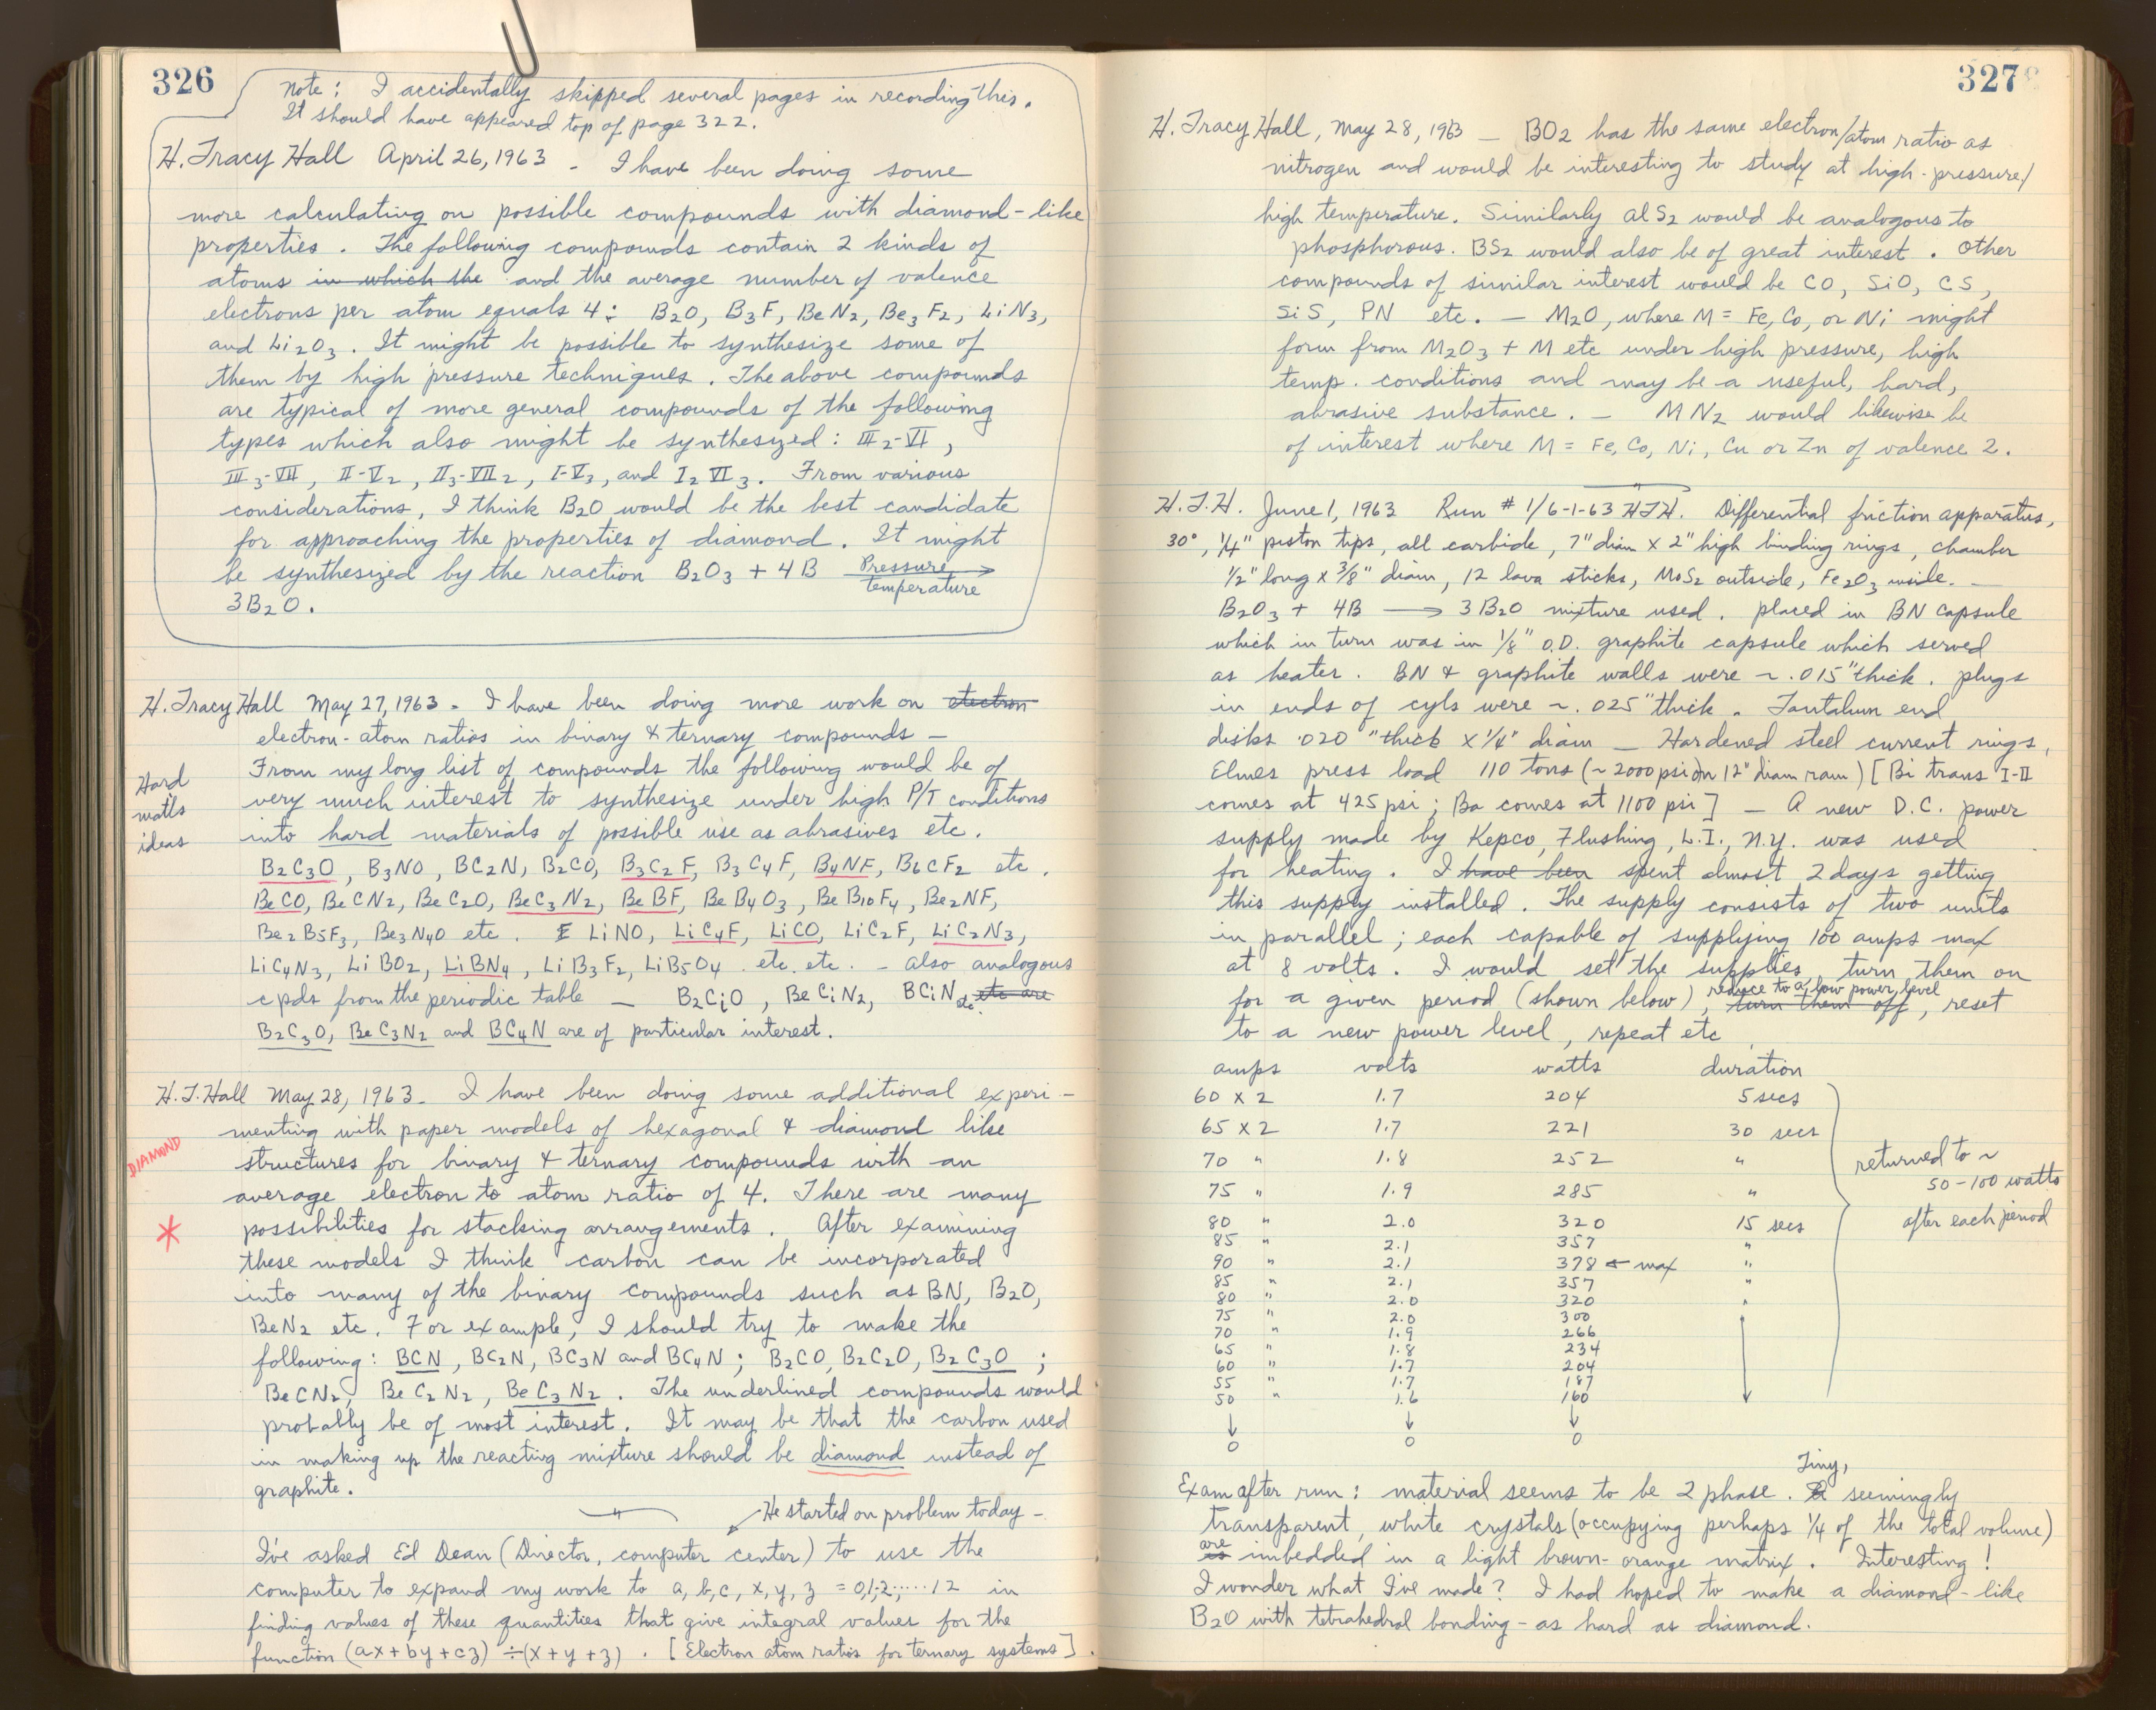 326
Note: I accidentally skipped several pages in recording this.
It should have appeared top of page 322.
H. Tracy Hall April 26, 1963 - I have been doing some
more calculating on possible compounds with diamond-like
properties. The following compounds contain 2 kinds of
atoms in which the and the average number of valence
electrons per atom equals 4: B2O, B3F, BeN2, Be3F2, LiN3,
and Li2O3. It might be possible to synthesize some of
them by high pressure techniques. The above compounds
are typical of more general compounds of the following
types which also might be synthesized: III2-VI,
III3-VII, II-V2, II3-VII2, I-V3, and I2 VI3. From various
considerations, I think B2O would be the best candidate
for approaching the properties of diamond. It might
be synthesized by the reaction B2O3 + 4B Pressure/temperature →
3B2O.
H. Tracy Hall May 27, 1963. I have been doing more work on electron
electron-atom ratios in binary & ternary compounds —
From my long list of compounds the following would be of
very much interest to synthesize under high P/T conditions
into hard materials of possible use as abrasives etc.
Hard
matls
ideas
B2C3O, B3NO, BC2N, B2CO, B3C2F, B3C4F, B4NF, B6CF2 etc.
BeCO, BeCN2, BeC2O, BeC3N2, BeBF, BeB4O3, BeB10F4, Be2NF,
Be2B5F3, Be3N4O etc. LiNO, LiC4F, LiCO, LiC2F, LiC2N3,
LiC4N3, LiBO2, LiBN4, LiB3F2, LiB5O4 etc. etc. - Also analogous
cpds from the periodic table — B2CiO, BeCiN2, BCiN etc. etc are
B2C3O, BeC3N2 and BC4N are of particular interest.
H.T. Hall May 28, 1963- I have been doing some additional experi-
menting with paper models of hexagonal & diamond like
DIAMOND
structures for binary & ternary compounds with an
average electron to atom ratio of 4. There are many
*
possibilities for stacking arrangements. After examining
these models I think carbon can be incorporated
into many of the binary compounds such as BN, B2O,
BeN2 etc. For example, I should try to make the
following: BCN, BC2N, BC3N and BC4N; B2CO, B2C2O, B2C3O;
BeCN2, BeC2N2, BeC3N2. The underlined compounds would
probably be of most interest. It may be that the carbon used
in making up the reacting mixture should be diamond instead of
graphite.
He started on problem today -
I've asked Ed Dean (Director, computer center) to use the
computer to expand my work to a, b, c, x, y, z = 0,1,2,.....12 in
finding values of these quantities that give integral values for the
function (ax + by + cz) ÷ (x + y + z). [Electron atom ratios for ternary systems].
327
H. Tracy Hall, May 28, 1963 — BO2 has the same electron/atom ratio as
nitrogen and would be interesting to study at high-pressure/
high temperature. Similarly AlS2 would be analogous to
phosphorous. BS2 would also be of great interest. Other
compounds of similar interest would be CO, SiO, CS,
SiS, PN etc. — M2O, where M = Fe, Co, or Ni might
form from M2O3 + M etc under high pressure, high
temp. conditions and may be a useful, hard,
abrasive substance. — MN2 would likewise be
of interest where M = Fe, Co, Ni, Cu or Zn of valence 2.
H.T.H. June 1, 1963 Run # 1/6-1-63 HTH. Differential friction apparatus,
30°, 1/4" piston tips, all carbide, 7" diam x 2" high binding rings, chamber
1/2" long x 3/8" diam, 12 lava sticks, MoS2 outside, Fe2O3 inside. -
B2O3 + 4B → 3B2O mixture used. placed in BN capsule
which in turn was in 1/8" O.D. graphite capsule which served
as heater. BN & graphite walls were ~ .015" thick. plugs
in ends of cyls were ~ .025" thick. Tantalum end
disks .020" thick x 1/4" diam — Hardened steel current rings,
Elmes press load 110 tons (~2000 psi on 12" diam ram) [Bi trans I-II
comes at 425 psi; Ba comes at 1100 psi] — A new D.C. power
supply made by Kepco, Flushing, L.I., N.Y. was used
for heating. I have been spent almost 2 days getting
this supply installed. The supply consists of two units
in parallel; each capable of supplying 100 amps max
at 8 volts. I would set the supplies, turn them on
for a given period (shown below), reduce to a low power level turn them off, reset
to a new power level, repeat etc
amps volts watts duration
60 x 2 1.7 204 5 secs
65 x 2 1.7 221 30 secs
70 " 1.8 252 "
75 " 1.9 285 "
80 " 2.0 320 15 secs
85 " 2.1 357 "
90 " 2.1 378 ← max "
85 " 2.1 357 "
80 " 2.0 320 "
75 " 2.0 300
70 " 1.9 266
65 " 1.8 234
60 " 1.7 204
55 " 1.7 187
50 " 1.6 160
↓ ↓ ↓
0 0 0
returned to ~
50-100 watts
after each period
Exam after run: material seems to be 2 phase. Tiny, seemingly
transparent, white crystals (occupying perhaps 1/4 of the total volume)
are imbedded in a light brown-orange matrix. Interesting!
I wonder what I've made? I had hoped to make a diamond-like
B2O with tetrahedral bonding - as hard as diamond.